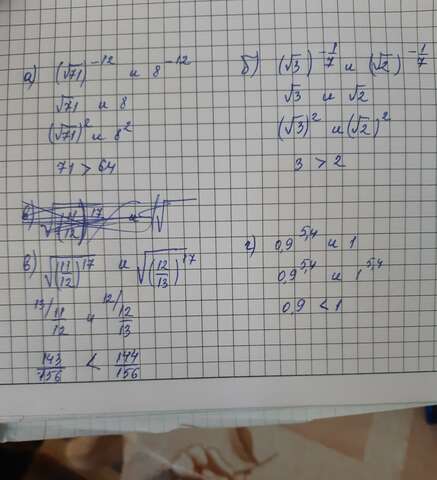 а) (√71)^-12 и 8^-12
√71 и 8
(√71)² и 8²
71 > 64
б) (√3)^-1/7 и (√2)^-1/7
√3 и √2
(√3)² и (√2)²
3 > 2
в) √(11/12)^17 и √
в) √(11/12)^17 и √(12/13)^17
13/ 11/12 и 12/ 12/13
143/156 < 144/156
г) 0,9^5,4 и 1
0,9^5,4 и 1^5,4
0,9 < 1